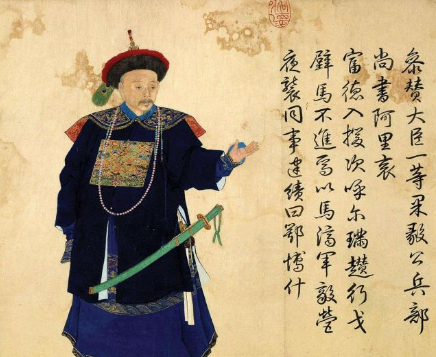 叅贊大臣一等果毅公兵部
尚書阿里袞
富德入援次呼尔璊趲行戈
壁馬不進焉以馬濟軍敵營
夜襲同事建績曰鄂博什